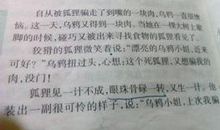 自从被狐狸骗走了到嘴的一块肉，乌鸦一直很懊
这一天，乌鸦又得到一块肉。当她在一棵大树上歇
脚的时候，碰巧又被出来寻找食物的狐狸看见了。
狡猾的狐狸微笑着说："漂亮的乌鸦小姐，近来
可好？"乌鸦扭过头，心想：这个死狐狸，又想骗我的
肉，没门！
狐狸见一计不成，眼珠骨碌一转，又生一计。他
装出一副很可怜的样子，说："乌鸦小姐，上次我骗